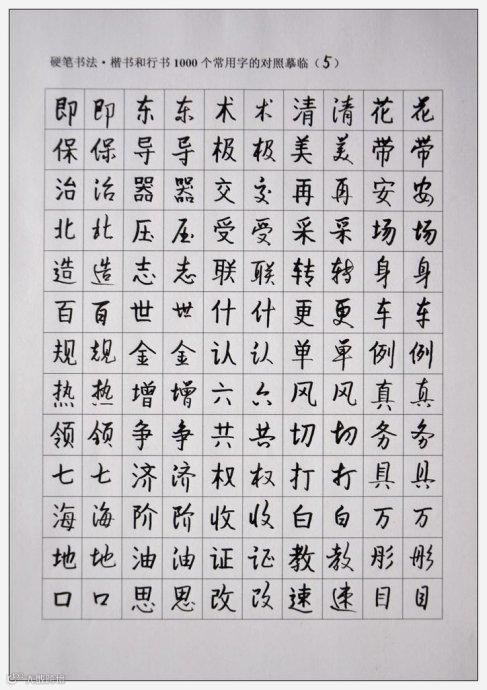 硬笔书法·楷书和行书1000个常用字的对照摹临（5）
即即东东术术清清花花
保保导导极极美美带带
治治器器交交再再安安
北北压压受受采采场场
造造志志联联转转身身
百百世世什什更更车车
规规金金认认单单例例
热热增增六六风风真真
领领争争共共切切务务
七七济济权权打打具具
海海阶阶收收白白万万
地地油油证证教教形形
口口思思改改速速目目